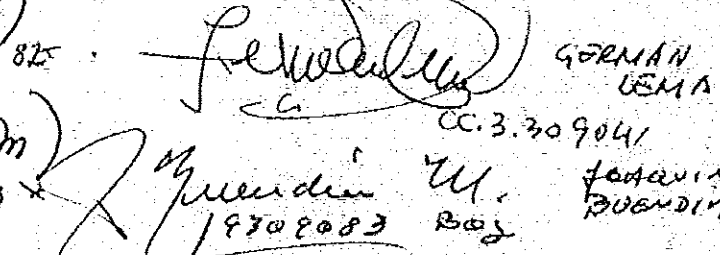 82
GERMAN
LEMA
CC. 3.309041
m
Buendia M.
JOAQUIN
BUENDIA
19302083 Bog